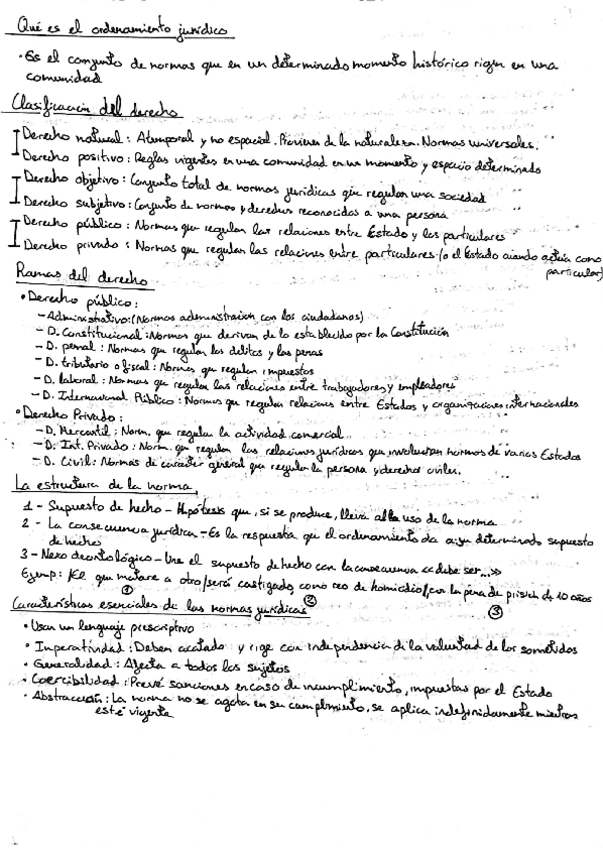 Qué es el ordenamiento jurídico
· Es el conjunto de normas que en un determinado momento histórico rigen en una
comunidad
Clasificación del derecho
Derecho natural: Atemporal y no espacial. Proviene de la naturaleza. Normas universales.
Derecho positivo: Reglas vigentes en una comunidad en un momento y espacio determinado
Derecho objetivo: Conjunto total de normas jurídicas que regulan una sociedad
Derecho subjetivo: Conjunto de normas y derechos reconocidos a una persona
Derecho público: Normas que regulan las relaciones entre Estado y los particulares
Derecho privado: Normas que regulan las relaciones entre particulares (o el Estado cuando actúa como
particular)
Ramas del derecho
• Derecho público:
- Administrativo: (Normas administración con los ciudadanos)
- D. Constitucional: Normas que derivan de lo establecido por la Constitución
- D. penal: Normas que regulan los delitos y las penas
- D. tributario o fiscal: Normas que regulan impuestos
- D. laboral: Normas que regulan las relaciones entre trabajadores y empleadores
- D. Internacional Público: Normas que regulan relaciones entre Estados y organizaciones internacionales
• Derecho Privado:
- D. Mercantil: Norm. que regulan la actividad comercial
- D. Int. Privado: Norm. que regulan las relaciones jurídicas que involucran normas de varios Estados
- D. Civil: Normas de carácter general que regulan la persona y derechos civiles.
La estructura de la norma
1 - Supuesto de hecho - Hipótesis que, si se produce, lleva al uso de la norma
2 - La consecuencia jurídica - Es la respuesta que el ordenamiento da a un determinado supuesto
de hecho
3 - Nexo deontológico - Une el supuesto de hecho con la consecuencia «debe ser...»
Ejemp: /El que matare a otro/será castigado, como reo de homicidio/con la pena de prisión de 10 años
① ② ③
Características esenciales de las normas jurídicas
• Usan un lenguaje prescriptivo
• Imperatividad: Deben acatado y rige con independencia de la voluntad de los sometidos
• Generalidad: Afecta a todos los sujetos
• Coercibilidad: Prevé sanciones en caso de incumplimiento, impuestas por el Estado
• Abstracción: La norma no se agota en su cumplimiento, se aplica indefinidamente mientras
esté vigente